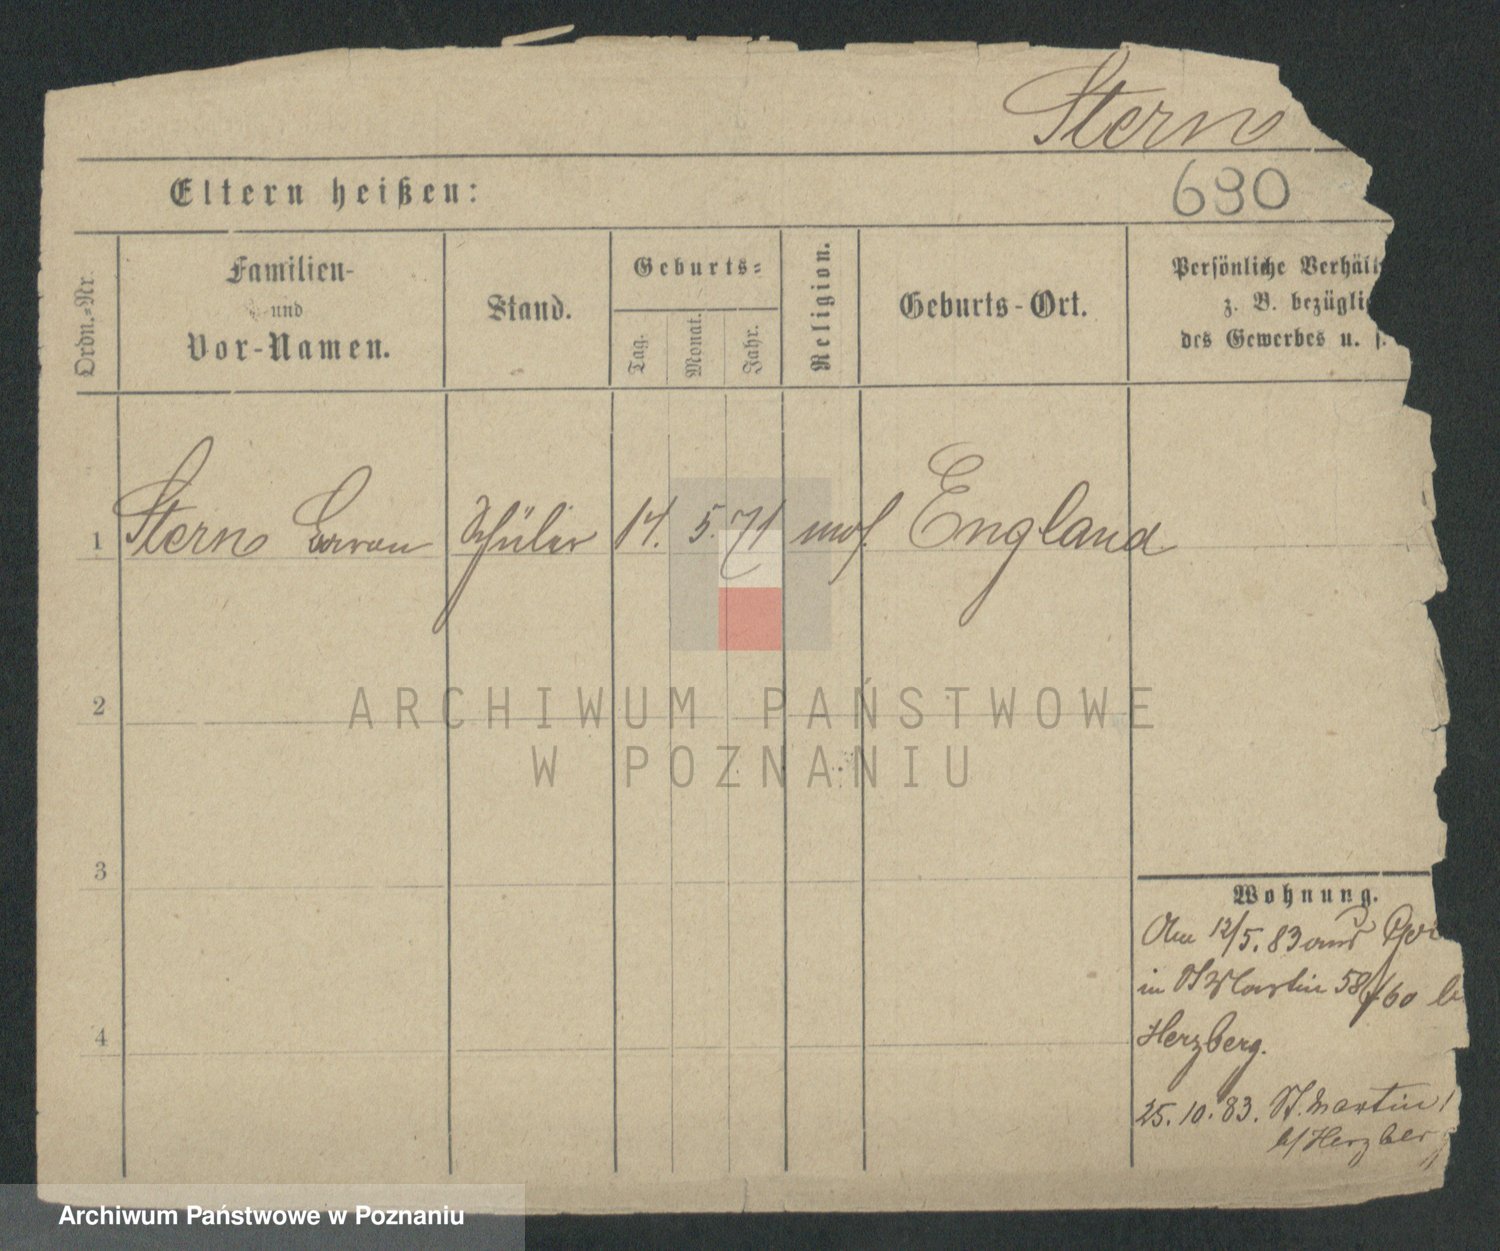 Stern
Eltern heißen:
690
Ordn.-Nr.
Familien-
und
Vor-Namen.
Stand.
Geburts-
Tag.
Monat.
Jahr.
Religion.
Geburts-Ort.
Persönliche Verhält
z. B. bezüglic
des Gewerbes u. s.
1 Stern Schüler 14. 5. 71 mos. England
2
3
4
Wohnung.
Am 12/5. 83 aus
in St Martin 58/60 b
Herzberg.
25. 10. 83. St. Martin
b/Herzberg
ARCHIWUM PAŃSTWOWE
W POZNANIU
Archiwum Państwowe w Poznaniu